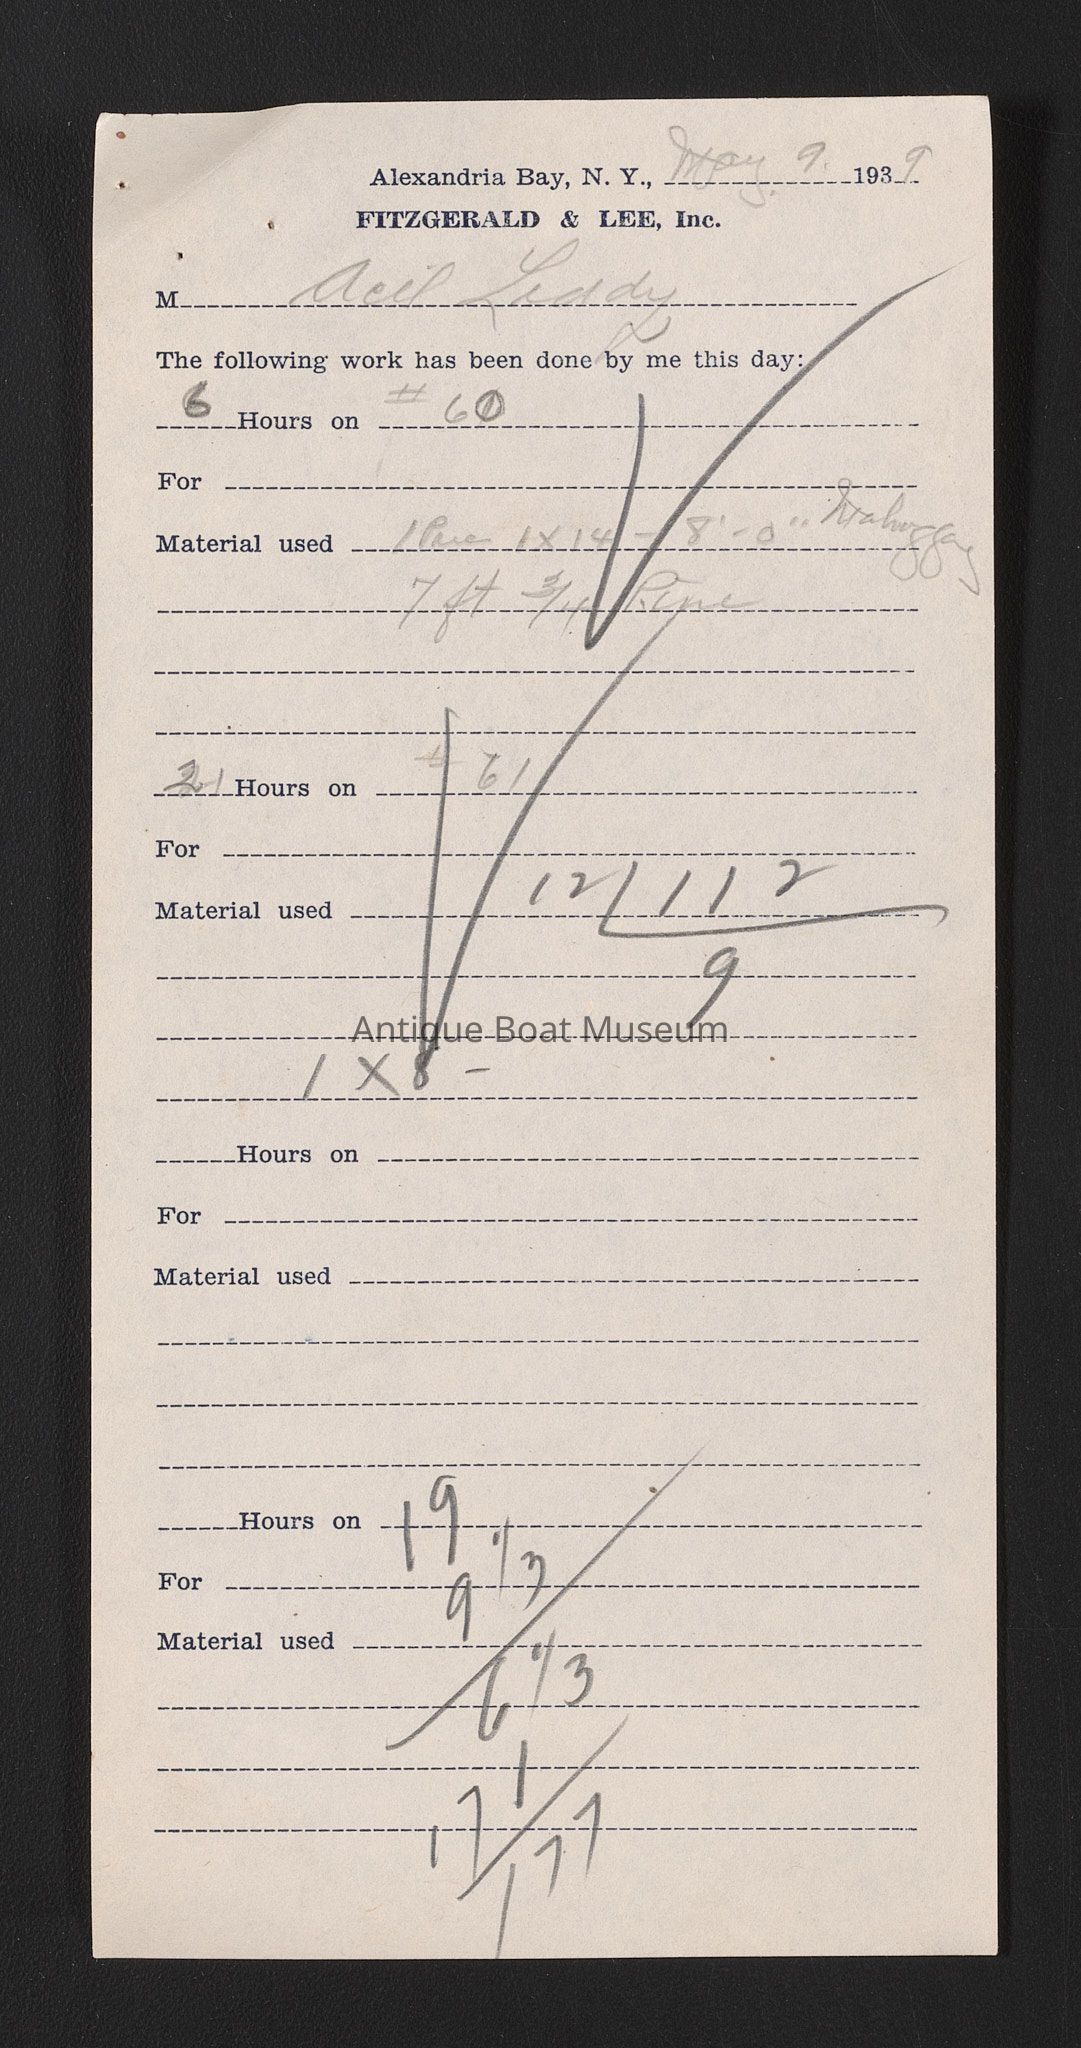 Alexandria Bay, N. Y., May 9. 1939
FITZGERALD & LEE, Inc.
M
The following work has been done by me this day:
6 Hours on # 60
For
Material used 1 1 X 14 - 8' - 0" Mahoggany
7 ft 3/4 Pine
21 Hours on # 61
For
Material used 12 / 112
9
Antique Boat Museum
1 X 8 -
Hours on
For
Material used
Hours on 19
For 9 1/3
Material used
6 1/3
1
17 / 177